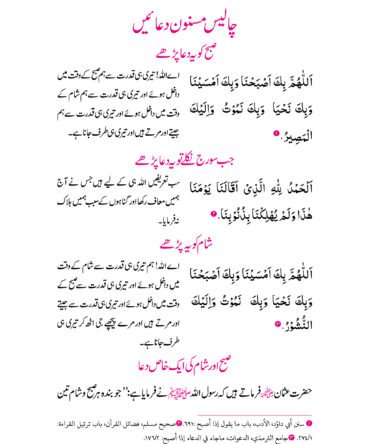 چالیس مسنون دعائیں
صبح کو یہ دعا پڑھے
اَللّٰهُمَّ بِكَ اَصْبَحْنَا وَبِكَ اَمْسَيْنَا
وَبِكَ نَحْيَا وَبِكَ نَمُوْتُ وَاِلَيْكَ
الْمَصِيْرُ. ❶
اے اللہ! تیری ہی قدرت سے ہم صبح کے وقت میں
داخل ہوئے اور تیری ہی قدرت سے ہم شام کے
وقت میں داخل ہوئے اور تیری ہی قدرت سے ہم
جیتے اور مرتے ہیں اور تیری ہی طرف جانا ہے۔
جب سورج نکلے تو یہ دعا پڑھے
اَلْحَمْدُ لِلّٰهِ الَّذِيْ اَقَالَنَا يَوْمَنَا
هٰذَا وَلَمْ يُهْلِكْنَا بِذُنُوْبِنَا. ❷
سب تعریفیں اللہ ہی کے لیے ہیں جس نے آج
ہمیں معاف رکھا اور گناہوں کے سبب ہمیں ہلاک
نہ فرمایا۔
شام کو یہ پڑھے
اَللّٰهُمَّ بِكَ اَمْسَيْنَا وَبِكَ اَصْبَحْنَا
وَبِكَ نَحْيَا وَبِكَ نَمُوْتُ وَاِلَيْكَ
النُّشُوْرُ. ❸
اے اللہ! ہم تیری ہی قدرت سے شام کے وقت
میں داخل ہوئے اور تیری ہی قدرت سے صبح کے
وقت میں داخل ہوئے اور تیری ہی قدرت سے جیتے
اور مرتے ہیں اور مرے پیچھے جی اٹھ کر تیری ہی
طرف جانا ہے۔
صبح اور شام کی ایک خاص دعا
حضرت عثمان رضی اللہ عنہ فرماتے ہیں کہ رسول اللہ ﷺ نے فرمایا ہے: ”جو بندہ ہر صبح و شام تین
❶ سنن أبي داود، الأدب، باب ما يقول إذا أصبح: ٦٩١. ❷ صحيح مسلم، فضائل القرآن، باب ترتيل القراءة:
٢٧٤/١. ❸ جامع الترمذي، الدعوات، ماجاء في الدعاء إذا أصبح: ١٧٦/٢.